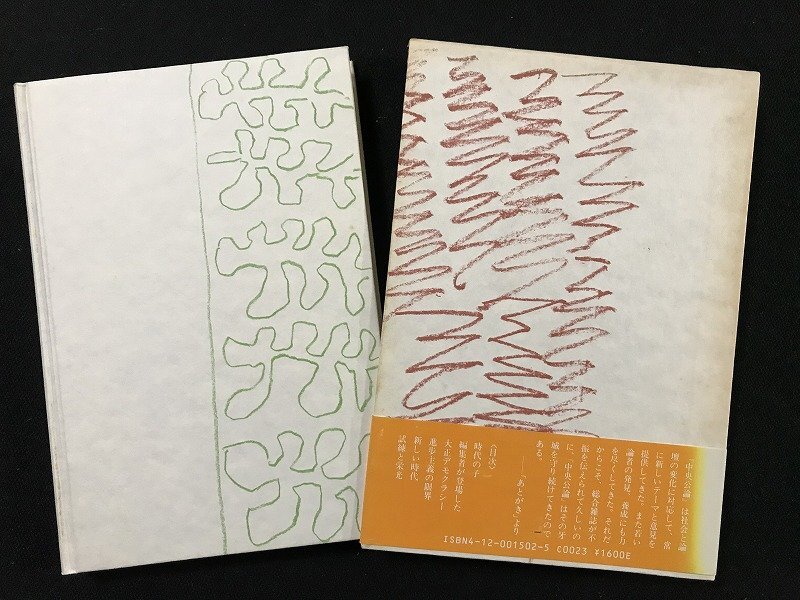 「中央公論」は社会と論
壇の変化に対応して、常
に新しいテーマと意見を
提供してきた。また若い
論者の発見、養成にも力
を尽くしてきた。それだ
からこそ、総合雑誌が不
振を伝えられて久しいの
に、「中央公論」はその牙
城を守り続けてきたので
ある。
――「あとがき」より
〈目次〉
時代の子
編集者が登場した
大正デモクラシー
進歩主義の限界
新しい時代
試練と栄光
ISBN4-12-001502-5 C0023 ¥1600E